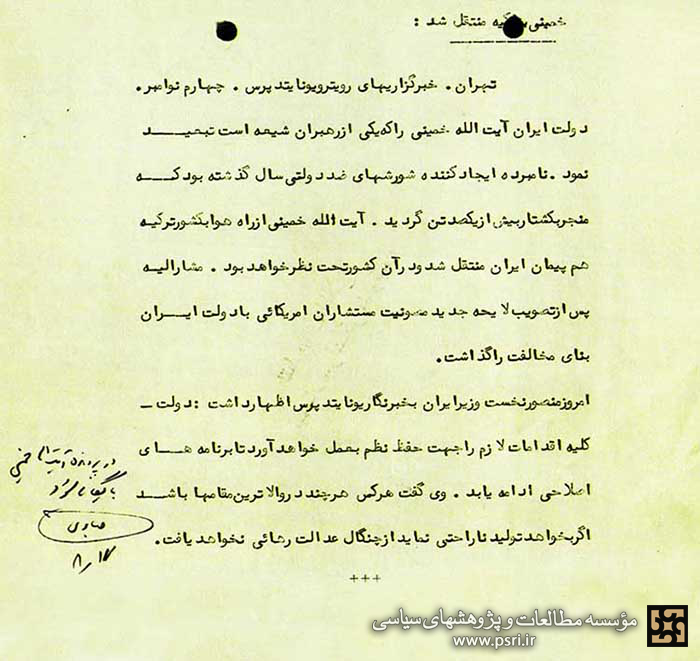 خمینی بترکیه منتقل شد :
تهران . خبرگزاریهای رویترویونایتدپرس . چهارم نوامبر .
دولت ایران آیت الله خمینی راکه یکی ازرهبران شیعه است تبعیـــد
نمود . نامبرده ایجادکننده شورشهای ضددولتی سال گذشته بودکـــه
منجربکشتاربیش ازیکصدتن گردید . آیت الله خمینی ازراه هوابکشورترکیه
هم پیمان ایران منتقل شدودرآن کشورتحت نظرخواهدبود . مشارالیه
پس ازتصویب لایحه جدید مصونیت مستشاران امریکائی بادولت ایـــران
بنای مخالفت راگذاشت .
امروزمنصورنخست وزیرایران بخبرنگاریونایتدپرس اظهارداشت : دولت ـ
کلیه اقدامات لازم راجهت حفظ نظم بعمل خواهدآوردتابرنامه هـــای
اصلاحی ادامه یابد . وی گفت هرکس هرچنددروالاترین مقامها باشـــد
اگربخواهدتولیدناراحتی نمایدازچنگال عدالت رهائی نخواهدیافت .
+++
در پرونده آیت‌اله خمینی
بایگانی شود
۸/۱۴
مؤسسه مطالعات و پژوهشهای سیاسی
www.psri.ir